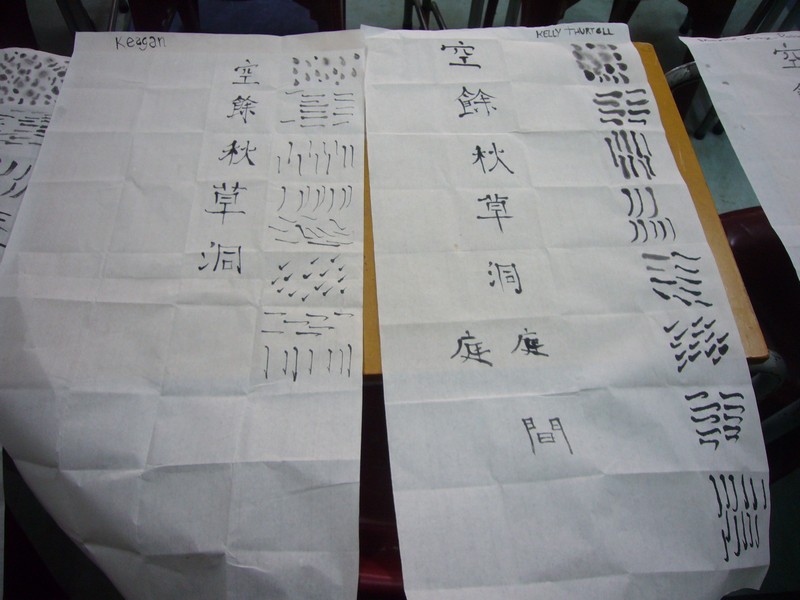 Keegan
空
餘
秋
草
洞
KELLY THURTELL
空
餘
秋
草
洞
庭 庭
間
空